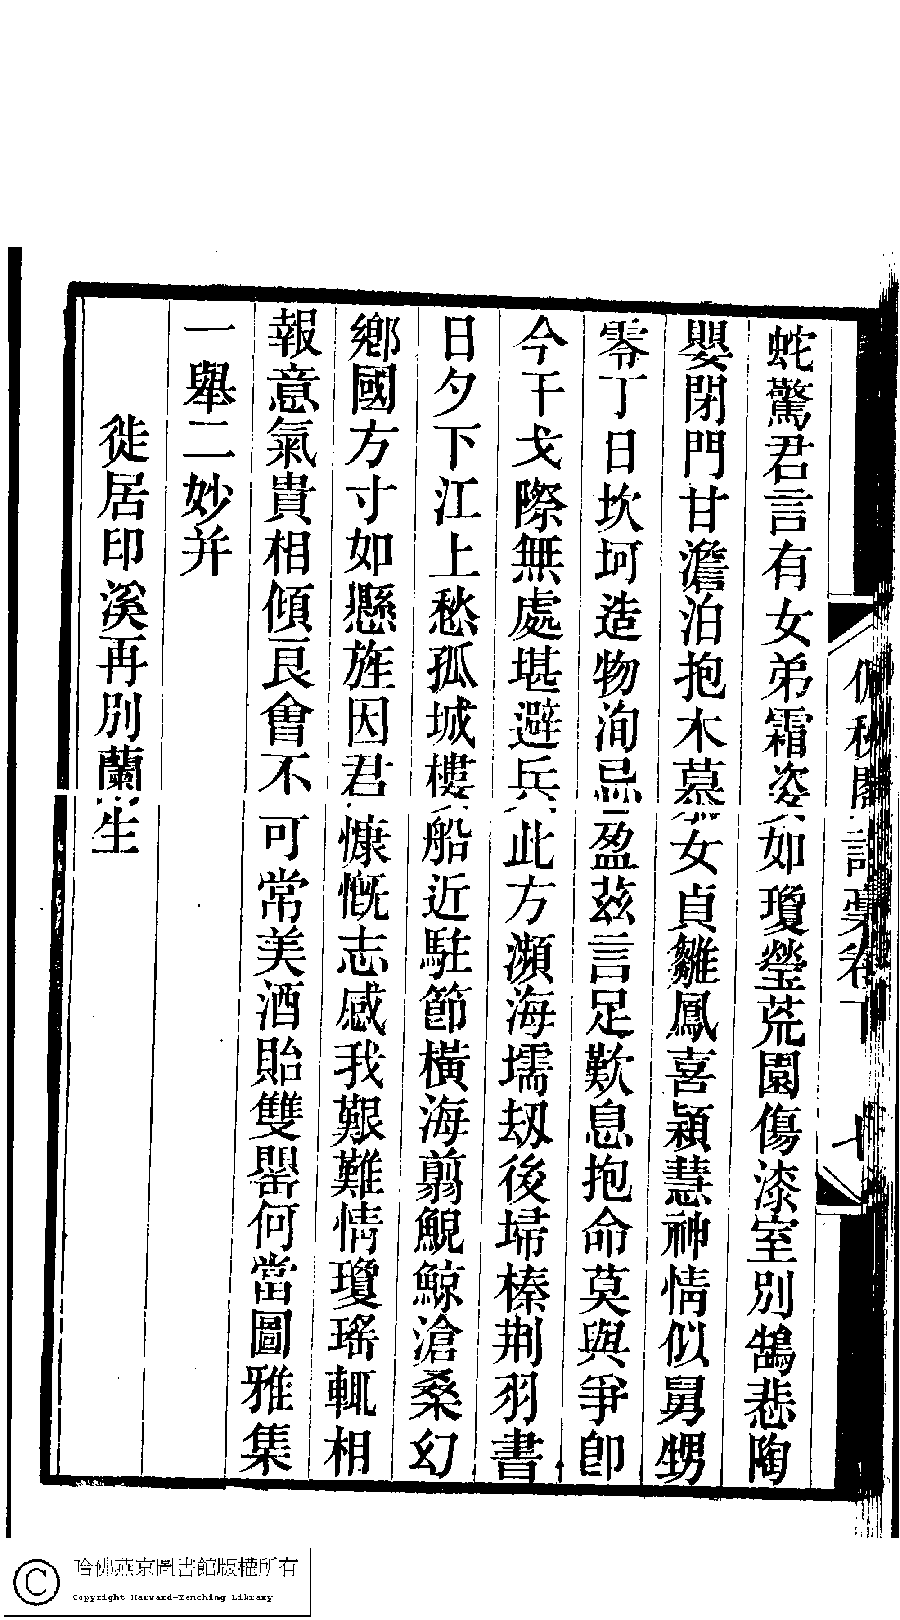 蛇驚君言有女弟霜姿如瓊瑩荒園傷漆室別鵠悲陶
嬰閉門甘澹泊抱木慕女貞雛鳳喜穎慧神情似舅甥
零丁日坎坷造物洵忌盈茲言足歎息抱命莫與爭卽
今干戈際無處堪避兵此方瀕海壖刼後埽榛荆羽書
日夕下江上愁孤城樓船近駐節橫海翦鯢鯨滄桑幻
鄉國方寸如懸旌因君慷慨志感我艱難情瓊瑤輒相
報意氣貴相傾良會不可常美酒貽雙罌何當圖雅集
一舉二妙并
徙居印溪再別蘭生
秋閣詩稾卷下
七
哈佛燕京圖書館版權所有
Copyright Harvard-Yenching Library